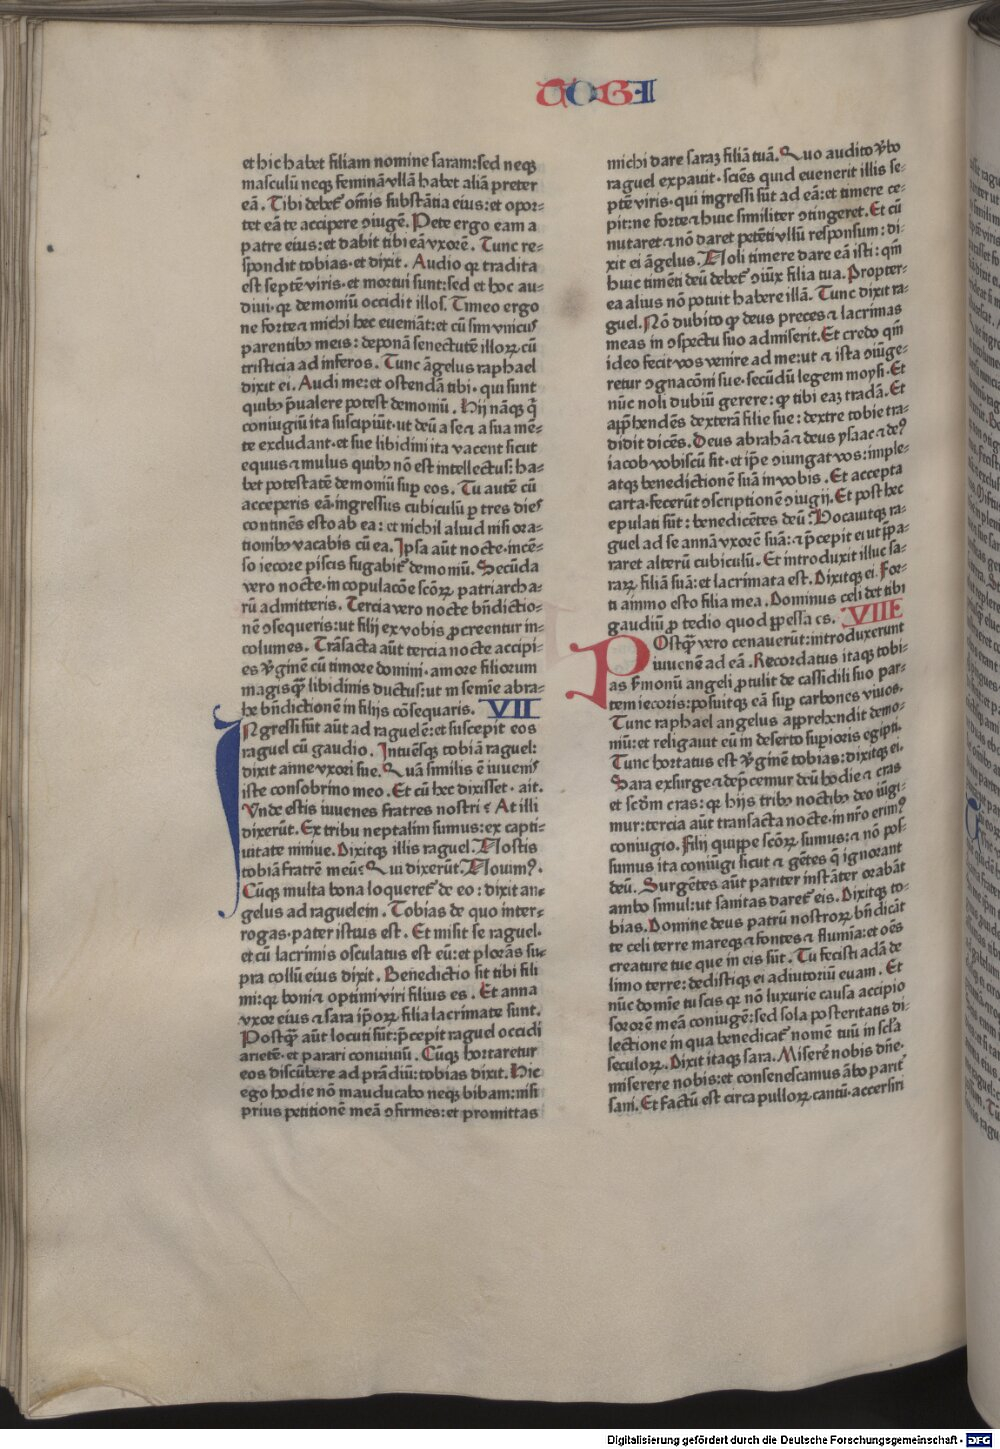 TOBI
et hic habet filiam nomine saram: sed neqȝ
masculū neqȝ feminā vllā habet aliā preter
eā. Tibi debet᷑ om̄is substātia eius: et opor-
tet eā te accipere ꝯiugē. Pete ergo eam a
patre eius: et dabit tibi eā vxorē. Tunc re-
spondit tobias· et dixit. Audio qꝛ tradita
est septē viris· et mortui sunt: sed et hoc au-
diui· qꝛ demoniū occidit illos. Timeo ergo
ne forte ⁊ michi hec eueniāt: et cū sim vnicuſ
parentibꝫ meis: deponā senectutē illoꝝ cū
tristicia ad inferos. Tunc āgelus raphael
dixit ei. Audi me: et ostendā tibi· qui sunt
quibꝫ p̄ualere potest demoniū. Hij nāqȝ q̄
coniugiū ita suscipiūt· ut deū a se ⁊ a sua mē-
te excludant· et sue libidini ita vacent sicut
equus ⁊ mulus quibꝫ nō est intellectus: ha-
bet potestatē demoniū suꝑ eos. Tu autē cū
acceperis eā· ingressus cubiculū ꝑ tres dieſ
continēs esto ab ea: et nichil aliud nisi ora-
tionibꝫ vacabis cū ea. Ipsa aūt nocte· incē-
so iecore piscis fugabit᷑ demoniū. Secūda
vero nocte· in copulacōe scōꝝ patriarcha-
rū admitteris. Tercia vero nocte bn̄dictio-
nē ꝯsequeris: ut filij ex vobis ꝓcreentur in-
columes. Trāsacta aūt tercia nocte accipi-
es v̓ginē cū timore domini· amore filiorum
magisqȝ libidinis ductus: ut in semīe abra-
he bn̄dictionē in filijs cōsequaris. VII
INgressi sūt aūt ad raguelē: et suscepit eos
raguel cū gaudio. Intuēsqȝ tobiā raguel:
dixit anne vxori sue. Quā similis ē iuueniſ
iste consobrino meo. Et cū hec dixisset· ait.
Vnde estis iuuenes fratres nostri? At illi
dixerūt. Ex tribu neptalim sumus: ex capti-
uitate niniue. Dixitqȝ illis raguel. Nostis
tobiā fratrē meū? Qui dixerūt. Nouimꝰ.
Cūqȝ multa bona loqueret᷑ de eo: dixit an-
gelus ad raguelem. Tobias de quo inter-
rogas· pater istius est. Et misit se raguel·
et cū lacrimis osculatus est eū: et plorās su-
pra collū eius dixit. Benedictio sit tibi fili
mi: qꝛ boni ⁊ optimi viri filius es. Et anna
vxor eius ⁊ sara ip̄oꝝ filia lacrimate sunt.
Postqȝ aūt locuti sūt: p̄cepit raguel occidi
arietē· et parari conuiuiū. Cūqȝ hortaretur
eos discūbere ad prādiū: tobias dixit. Hic
ego hodie nō manducabo neqȝ bibam: nisi
prius petitionē meā ꝯfirmes: et promittas
michi dare saraȝ filiā tuā. Quo audito v̓bo
raguel expauit· sciēs quid euenerit illis se-
ptē viris· qui ingressi sūt ad eā: et timere ce-
pit: ne forte ⁊ huic similiter ꝯtingeret. Et cū
nutaret ⁊ nō daret petēti vllū responsum: di-
xit ei āgelus. Noli timere dare eā isti: qm̄
huic timēti deū debet᷑ ꝯiūx filia tua. Propter-
ea alius nō potuit habere illā. Tunc dixit ra-
guel. Nō dubito qꝫ deus preces ⁊ lacrimas
meas in ꝯspectu suo admiserit. Et credo qm̄
ideo fecit vos venire ad me: ut ⁊ ista ꝯiūge-
retur ꝯgnacōni sue· secūdū legem moysi. Et
nūc noli dubiū gerere: qꝫ tibi eaȝ tradā. Et
app̄hendēs dexterā filie sue: dextre tobie tra-
didit dicēs. Deus abrahā ⁊ deus ysaac ⁊ deꝰ
iacob vobiscū sit· et ip̄e ꝯiungat vos: imple-
atqȝ benedictionē suā in vobis. Et accepta
carta· fecerūt ꝯscriptionē ꝯiugij. Et post hec
epulati sūt: benedicētes deū. Vocauitqȝ ra-
guel ad se annā vxorē suā: ⁊ p̄cepit ei ut p̄pa-
raret alterū cubiculū. Et introduxit illuc sa-
raȝ filiā suā: et lacrimata est. Dixitqȝ ei. For-
ti animo esto filia mea. Dominus celi det tibi
gaudiū ꝓ tedio quod ꝑpessa es. VIII
POstqȝ vero cenauerūt: introduxerunt
iuuenē ad eā. Recordatus itaqȝ tobi-
as s̓monū angeli ꝓtulit de cassidili suo par-
tem iecoris: posuitqȝ eā suꝑ carbones viuos.
Tunc raphael angelus app̄rehendit demo-
niū: et religauit eū in deserto suꝑioris egipti.
Tunc hortatus est v̓ginē tobias: dixitqȝ ei.
Sara exsurge ⁊ dep̄cemur deū hodie ⁊ cras
et scd̄m cras: qꝛ hijs tribꝫ noctibꝫ deo iūgi-
mur: tercia aūt transacta nocte· in nr̄o erimꝰ
coniugio. Filij quippe scōꝝ sumus: ⁊ nō pos-
sumus ita coniūgi sicut ⁊ gētes q̄ ignorant
deū. Surgētes aūt pariter instāter orabāt
ambo simul: ut sanitas daret᷑ eis. Dixitqȝ to-
bias. Domine deus patrū nostroꝝ bn̄dicāt
te celi terre mareqȝ ⁊ fontes ⁊ flumīa: et oēs
creature tue que in eis sūt. Tu fecisti adā de
limo terre: dedistiqȝ ei adiutoriū euam. Et
nūc domīe tu scis qꝛ nō luxurie causa accipio
sororē meā coniugē: sed sola posteritatis di-
lectione in qua benedicat᷑ nomē tuū in scl̄a
seculoꝝ. Dixit itaqȝ sara. Miserē nobis dn̄e·
miserere nobis: et consenescamus ābo parit᷑
sani. Et factū est circa pulloꝝ cantū· accersiri
Digitalisierung gefördert durch die Deutsche Forschungsgemeinschaft - DFG